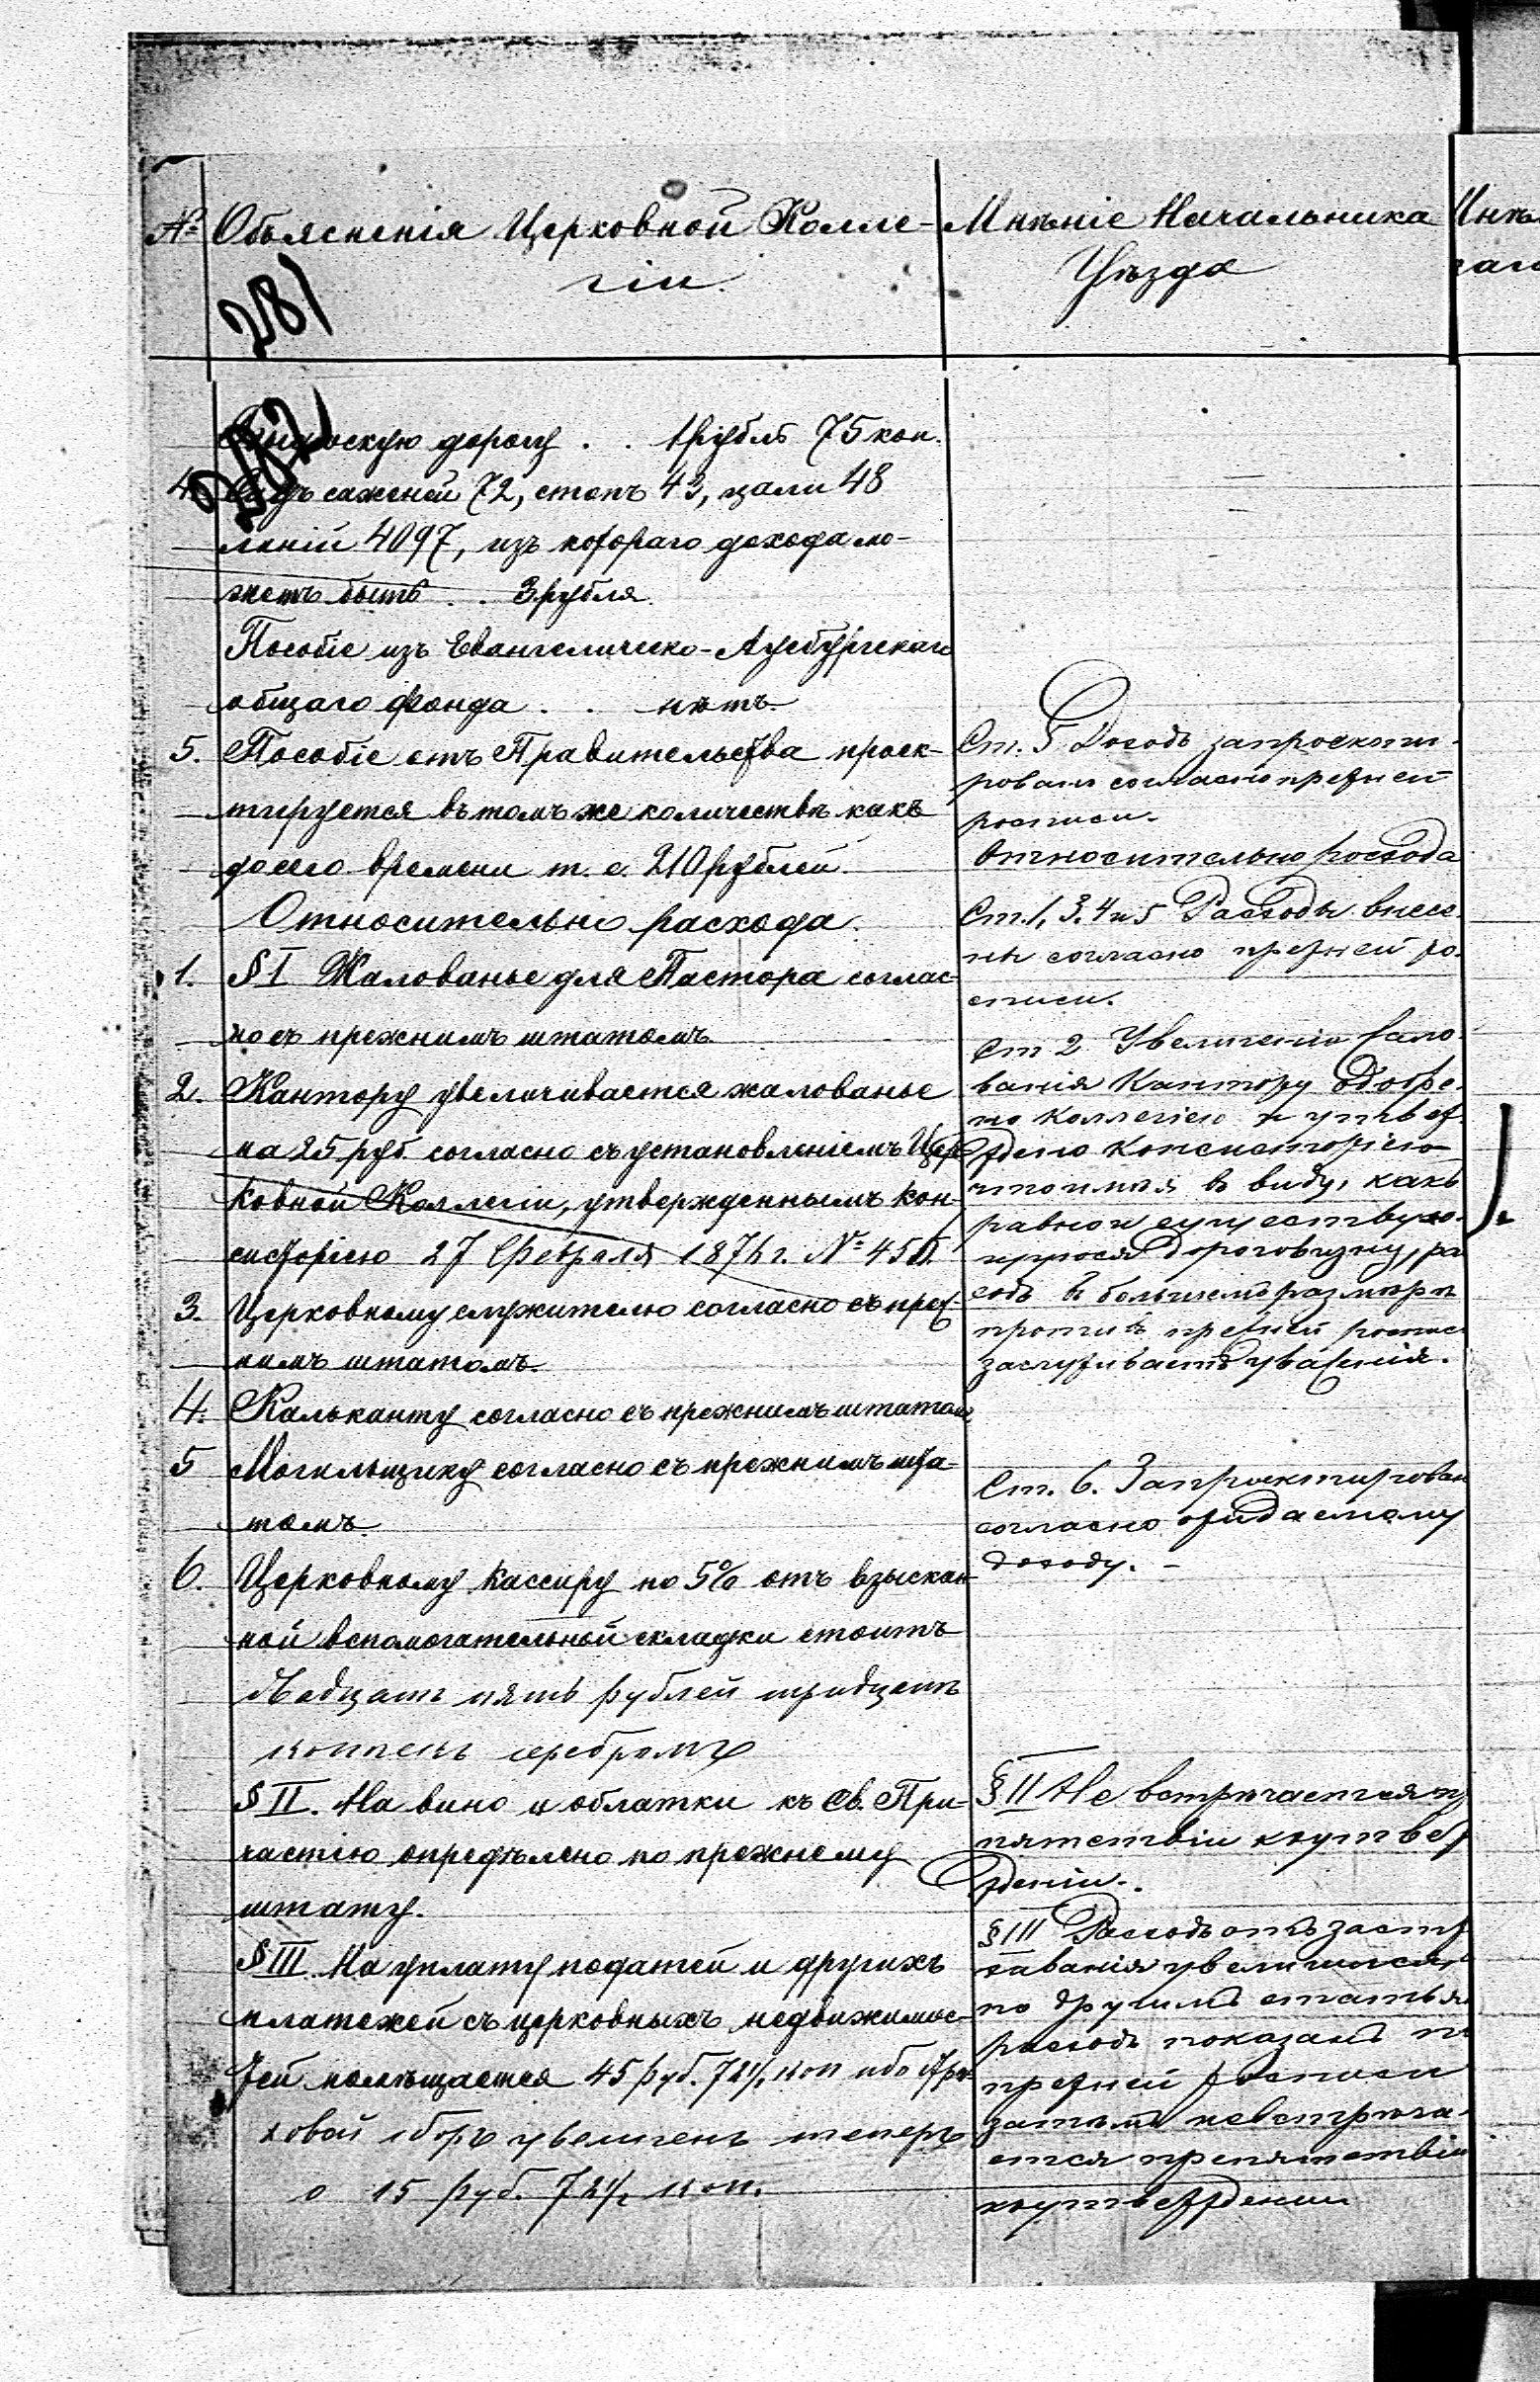 № Объясненія Церковной Колле-
гіи.
281
дорогу . . 1 рубль 75 коп.
4. саженей 72, стопъ 43, цали 48
линій 4097, изъ котораго дохода мо-
жетъ быть . . 3 рубля.
Пособіе изъ Евангелическо-Аугсбургскаго
общаго фонда . . нѣтъ.
5. Пособіе отъ Правительства проек-
тируется въ томъ же количествѣ какъ
до сего времени т. е. 210 рублей.
Относительно расхода.
1. § I Жалованье для Пастора соглас-
но съ прежнимъ штатомъ.
2. Кантору увеличивается жалованье
на 25 руб. согласно съ установленіемъ Цер-
ковной Коллегіи, утвержденнымъ Кон-
систоріею 27 Февраля г. №
3. Церковному служителю согласно съ преж-
нимъ штатомъ.
4. Кальканту согласно съ прежнимъ штатомъ
5 Могильщику согласно съ прежнимъ шта-
томъ.
6. Церковному Кассиру по 5% отъ взыскан-
ной вспомогательной складки стоитъ
двадцать пять рублей тридцать
копѣекъ серебромъ
§ II. На вино и облатки къ Св. При-
частію опредѣлено по прежнему
штату.
§ III. На уплату податей и другихъ
платежей съ церковныхъ недвижимос-
тей помѣщается 45 руб. 72½ коп ибо
сборъ увеличенъ теперь
о 15 руб. 72½ коп.
Мнѣніе Начальника
Уѣзда
Ст. 5 Доходъ запроекти-
рованъ согласно прежней
росписи.
Относительно расхода
Ст. 1, 3, 4 и 5 Расходы внесе-
ны согласно прежней ро-
списи.
Ст 2 Увеличеніе жало-
ванія Кантору одобре-
но Коллегіею и утвер-
ждено Консисторіею
что имѣя въ виду, какъ
равно и существую-
щуюся дороговизну, рас
ходъ въ большемъ размѣрѣ
противъ прежней роспис
заслуживаетъ уваженія.
Ст. 6. Запроектирован
согласно ожидаемому
доходу. -
§ II Не встрѣчается пре
пятствіи къ утвер
жденію.
§ III Расходъ отъ застр
хованія увеличился,
по другимъ статья
расходъ показанъ по
прежней росписи
затѣмъ не встрѣча-
ется препятствія
къ утвержденію
Мнѣ